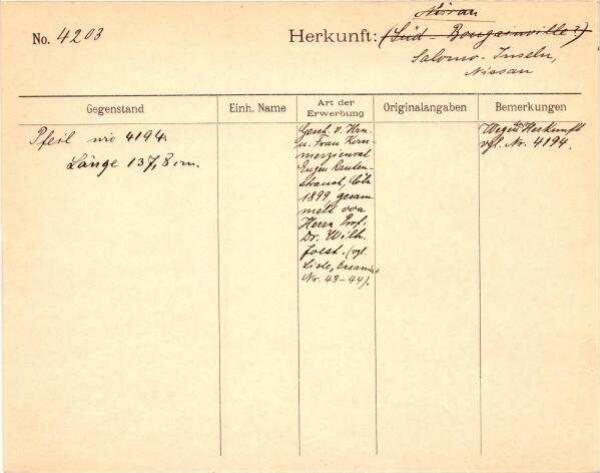 Nissan
No. 4203 Herkunft: (Süd-Bougainville?)
Salomo-Inseln,
Nissan
Gegenstand Einh. Name Art der Erwerbung Originalangaben Bemerkungen
Pfeil wie 4194.
Länge 137,8 cm.
Gesch. v. Hrn.
u. Frau Kom-
merzienrat
Eugen Rauten-
strauch, Cöln
1899, gesam-
melt von
Herrn Prof.
Dr. Wilh.
Joest. (vgl.
Liste, Oceanien
Nr. 43-44).
Wegen Herkunft
vgl. Nr. 4194.